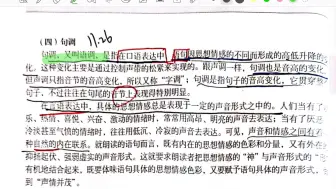 （四）句调 11.26
句调，又叫语调，是指在口语表达中，语句因思想情感的不同而形成的高低升降的变
化。这种变化主要是通过控制声带的松紧来实现的。跟声调一样，句调也是音高的变化，
但声调只指音节的音高变化，所以又称“字调”；句调是指句子的音高变化，它贯穿
句子，不过往往在句尾的音节上表现得特别明显。
在言语表达中，具体的思想情感总是表现于一定的声音形式之中的。人们当有了
乐、热情、喜悦、兴奋、激动的情绪时，常常用高昂、明亮的声音去表达；当有了
冷淡甚至气愤的情绪时，往往用低沉、冷寂的声音去表达。可见，声音和情感之间有
种自然的内在联系。就朗读的语句而言，既有内在的思想情感的色彩和分量，又有外在
抑扬起伏、强弱虚实的声音形式。这就要求朗读者把思想情感的“神”与声音形式的“
有机地结合起来。既要体味语句具体的思想情感，又要赋予语句具体的声音形式，
到“声情并茂”。